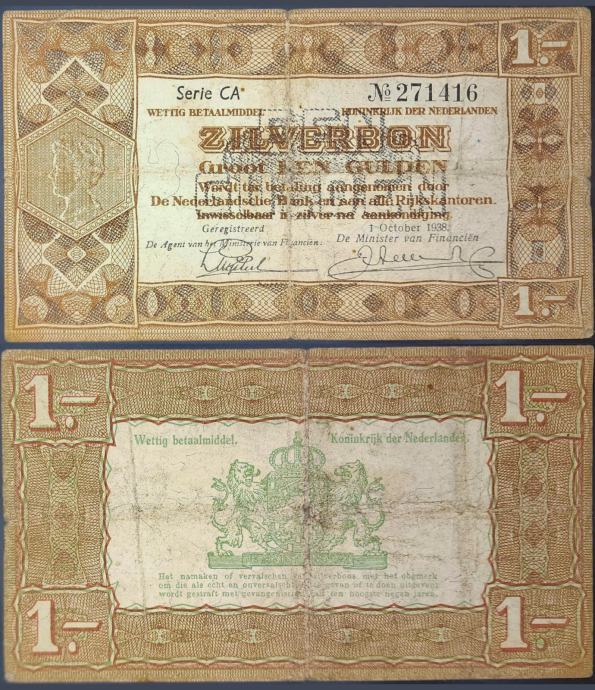 1.-
Serie CA
№ 271416
WETTIG BETAALMIDDEL KONINKRIJK DER NEDERLANDEN
ZILVERBON
Groot EEN GULDEN
Wordt ter betaling aangenomen door
De Nederlandsche Bank en aan alle Rijkskantoren.
Inwisselbaar in zilver na aankondiging.
Geregistreerd 1 October 1938.
De Agent van het Ministerie van Financiën: De Minister van Financiën
1.-
1.- 1.-
Wettig betaalmiddel. Koninkrijk der Nederlanden.
Het namaken of vervalschen van zilverbons met het oogmerk
om die als echt en onvervalscht uit te geven of te doen uitgeven
wordt gestraft met gevangenisstraf van ten hoogste negen jaren.
1.- 1.-